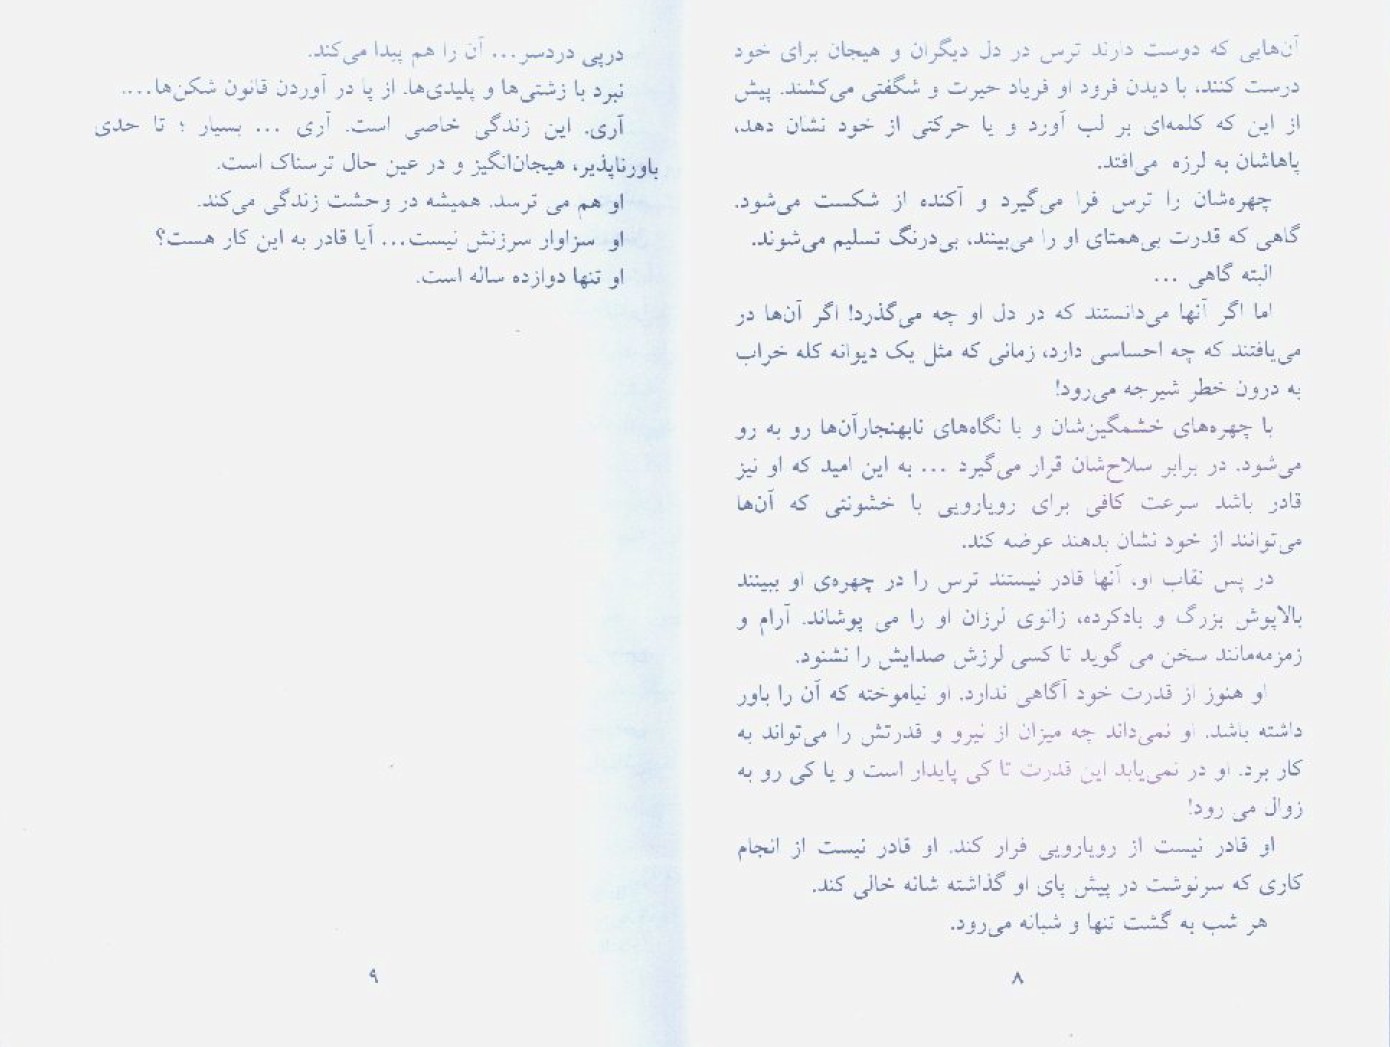 آن‌هایی که دوست دارند ترس در دل دیگران و هیجان برای خود
درست کنند، با دیدن فرود او فریاد حیرت و شگفتی می‌کشند. پیش
از این که کلمه‌ای بر لب آورد و یا حرکتی از خود نشان دهد،
پاهاشان به لرزه می‌افتد.
چهره‌شان را ترس فرا می‌گیرد و آکنده از شکست می‌شود.
گاهی که قدرت بی‌همتای او را می‌بینند، بی‌درنگ تسلیم می‌شوند.
البته گاهی ...
اما اگر آنها می‌دانستند که در دل او چه می‌گذرد! اگر آن‌ها در
می‌یافتند که چه احساسی دارد، زمانی که مثل یک دیوانه کله خراب
به درون خطر شیرجه می‌رود!
با چهره‌های خشمگین‌شان و با نگاه‌های نابهنجارآن‌ها رو به رو
می‌شود. در برابر سلاح‌شان قرار می‌گیرد ... به این امید که او نیز
قادر باشد سرعت کافی برای رویارویی با خشونتی که آن‌ها
می‌توانند از خود نشان بدهند عرضه کند.
در پس نقاب او، آنها قادر نیستند ترس را در چهره‌ی او ببینند
بالاپوش بزرگ و بادکرده، زانوی لرزان او را می پوشاند. آرام و
زمزمه‌مانند سخن می گوید تا کسی لرزش صدایش را نشنود.
او هنوز از قدرت خود آگاهی ندارد. او نیاموخته که آن را باور
داشته باشد. او نمی‌داند چه میزان از نیرو و قدرتش را می‌تواند به
کار برد. او در نمی‌یابد این قدرت تا کی پایدار است و یا کی رو به
زوال می رود!
او قادر نیست از رویارویی فرار کند. او قادر نیست از انجام
کاری که سرنوشت در پیش پای او گذاشته شانه خالی کند.
هر شب به گشت تنها و شبانه می‌رود.
۸
درپی دردسر... آن را هم پیدا می‌کند.
نبرد با زشتی‌ها و پلیدی‌ها. از پا در آوردن قانون شکن‌ها....
آری. این زندگی خاصی است. آری ... بسیار ؛ تا حدی
باورناپذیر، هیجان‌انگیز و در عین حال ترسناک است.
او هم می ترسد. همیشه در وحشت زندگی می‌کند.
او سزاوار سرزنش نیست... آیا قادر به این کار هست؟
او تنها دوازده ساله است.
۹